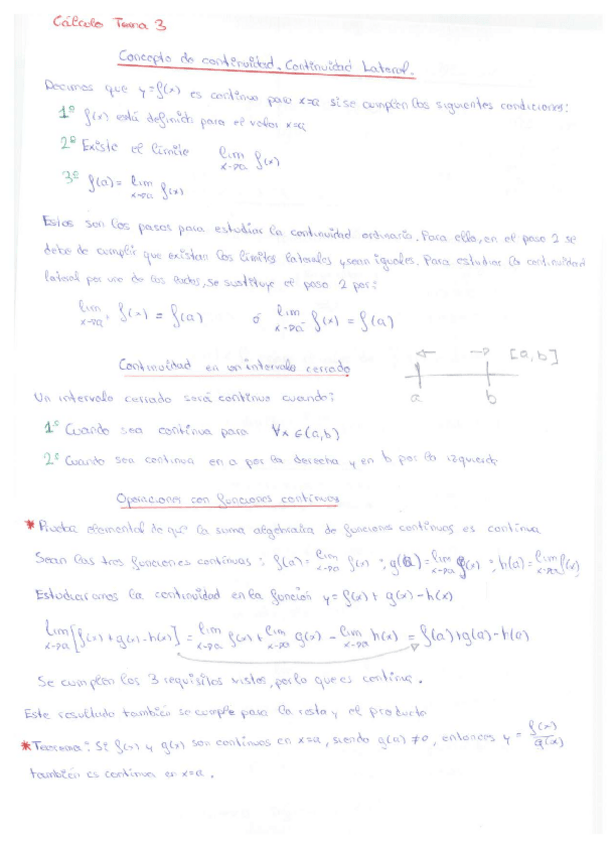 Cálculo Tema 3
Concepto de continuidad. Continuidad Lateral.
Decimos que y=f(x) es continua para x=a si se cumplen las siguientes condiciones:
1º f(x) está definida para el valor x=a
2º Existe el límite lim x→a f(x)
3º f(a) = lim x→a f(x)
Estos son los pasos para estudiar la continuidad ordinaria. Para ello, en el paso 2 se
debe de cumplir que existan los límites laterales y sean iguales. Para estudiar la continuidad
lateral por uno de los lados, se sustituye el paso 2 por:
lim x→a⁺ f(x) = f(a) ó lim x→a⁻ f(x) = f(a)
Continuidad en un intervalo cerrado
← → [a,b]
a b
Un intervalo cerrado será continuo cuando:
1º Cuando sea continua para ∀x ∈ (a,b)
2º Cuando sea continua en a por la derecha y en b por la izquierda
Operaciones con funciones continuas
* Prueba elemental de que la suma algebraica de funciones continuas es continua
Sean las tres funciones continuas: f(a) = lim x→a f(x) ; g(a) = lim x→a g(x) ; h(a) = lim x→a f(x)
Estudiaremos la continuidad en la función y = f(x) + g(x) - h(x)
lim x→a [f(x) + g(x) - h(x)] = lim x→a f(x) + lim x→a g(x) - lim x→a h(x) = f(a) + g(a) - h(a)
Se cumplen los 3 requisitos vistos, por lo que es continua.
Este resultado también se cumple para la resta y el producto
* Teorema: Si f(x) y g(x) son continuas en x=a, siendo g(a) ≠ 0, entonces y = f(x)/g(x)
también es continua en x=a.